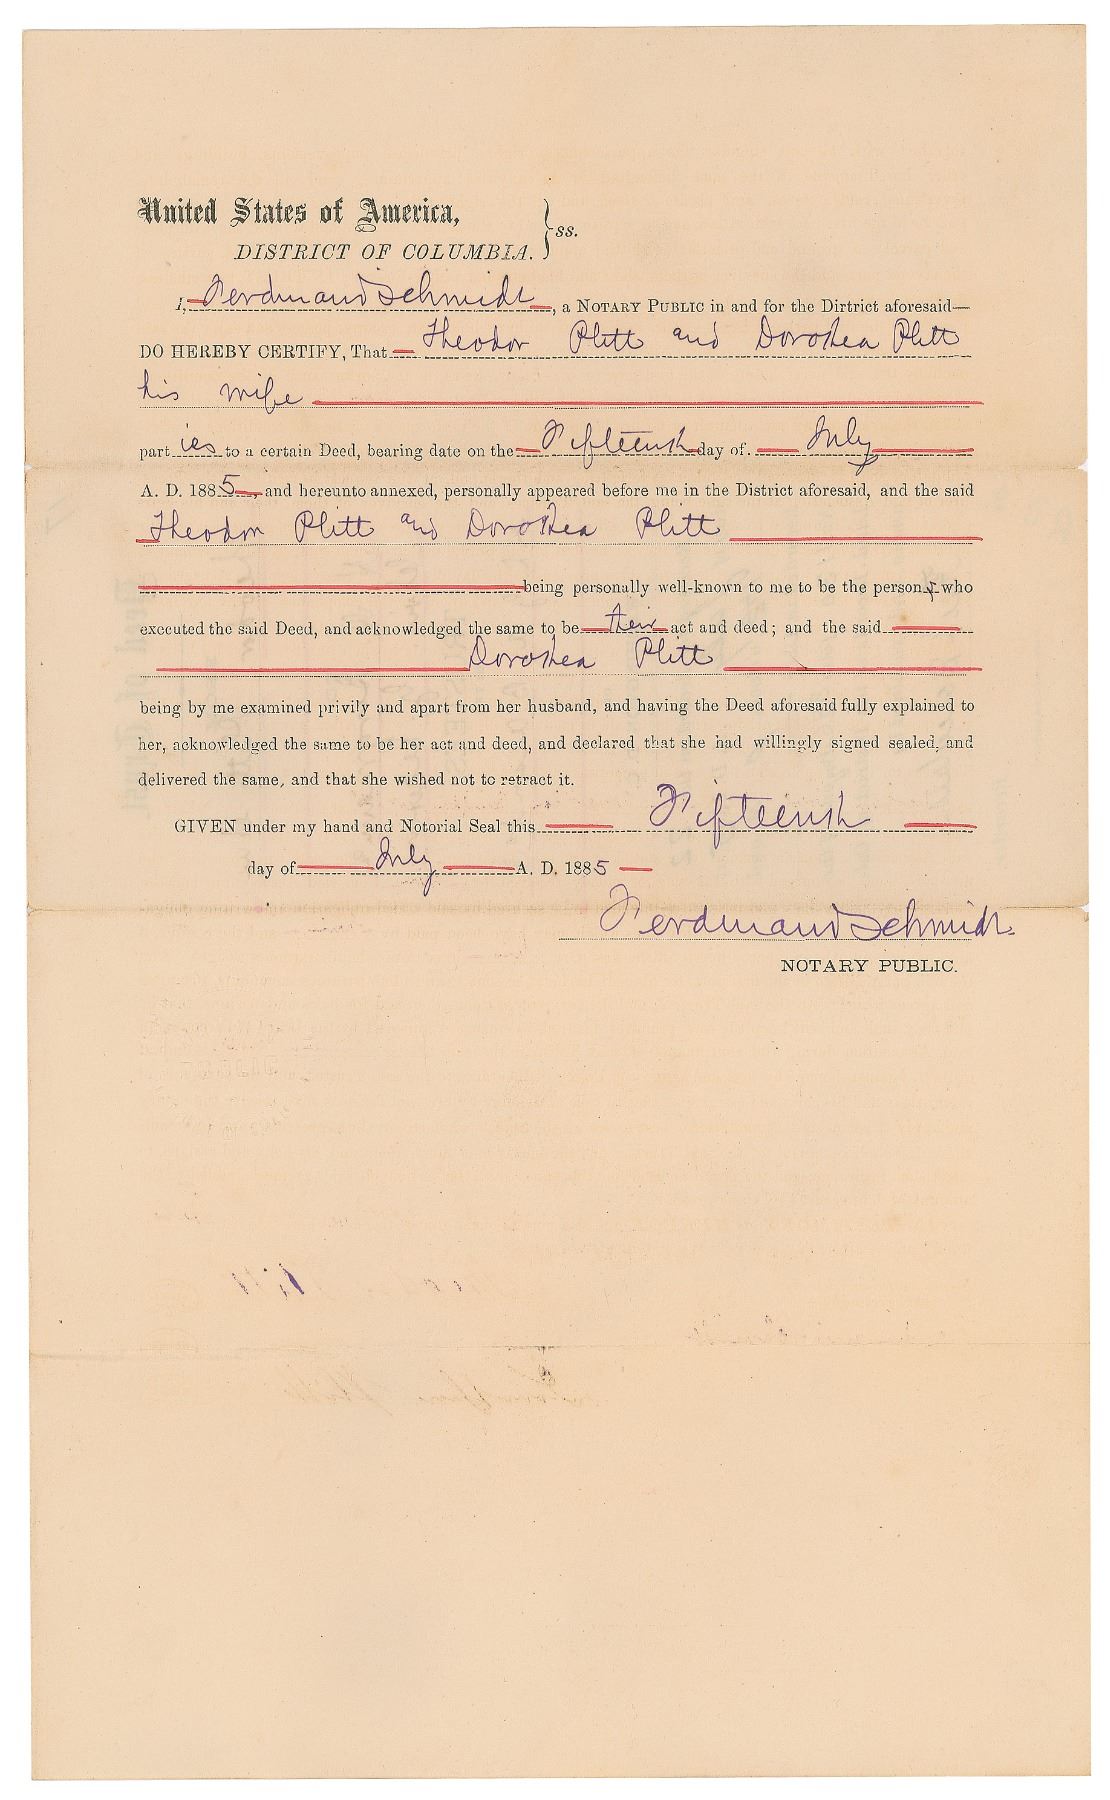 United States of America,
DISTRICT OF COLUMBIA. } ss.
I, Ferdinand Schmidt, a NOTARY PUBLIC in and for the Dirtrict aforesaid—
DO HEREBY CERTIFY, That Theodor Plitt and Dorothea Plitt
his wife
part ies to a certain Deed, bearing date on the Fifteenth day of. July
A. D. 1885, and hereunto annexed, personally appeared before me in the District aforesaid, and the said
Theodor Plitt and Dorothea Plitt
being personally well-known to me to be the persons who
executed the said Deed, and acknowledged the same to be their act and deed; and the said
Dorothea Plitt
being by me examined privily and apart from her husband, and having the Deed aforesaid fully explained to
her, acknowledged the same to be her act and deed, and declared that she had willingly signed sealed, and
delivered the same, and that she wished not to retract it.
GIVEN under my hand and Notorial Seal this Fifteenth
day of July A. D. 1885
Ferdinand Schmidt
NOTARY PUBLIC.